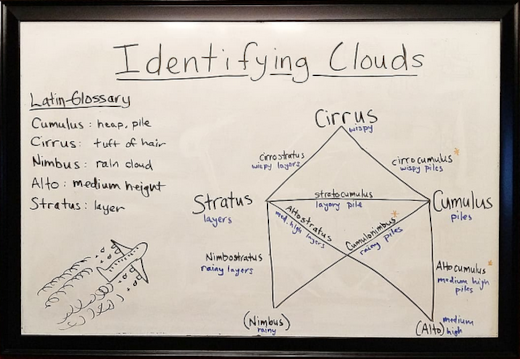 Identifying Clouds
Latin-Glossary
Cumulus : heap, pile
Cirrus : tuft of hair
Nimbus : rain cloud
Alto : medium height
Stratus : layer
Cirrus
wispy
Cirrostratus
wispy layers
cirrocumulus*
wispy piles
Stratus
layers
stratocumulus
layory pile
Cumulus
piles
Altostratus
med. high layers
Cumulonimbus*
rainy piles
Nimbostratus
rainy layers
Altocumulus*
medium high
piles
(Nimbus)
rainy
(Alto) medium
high